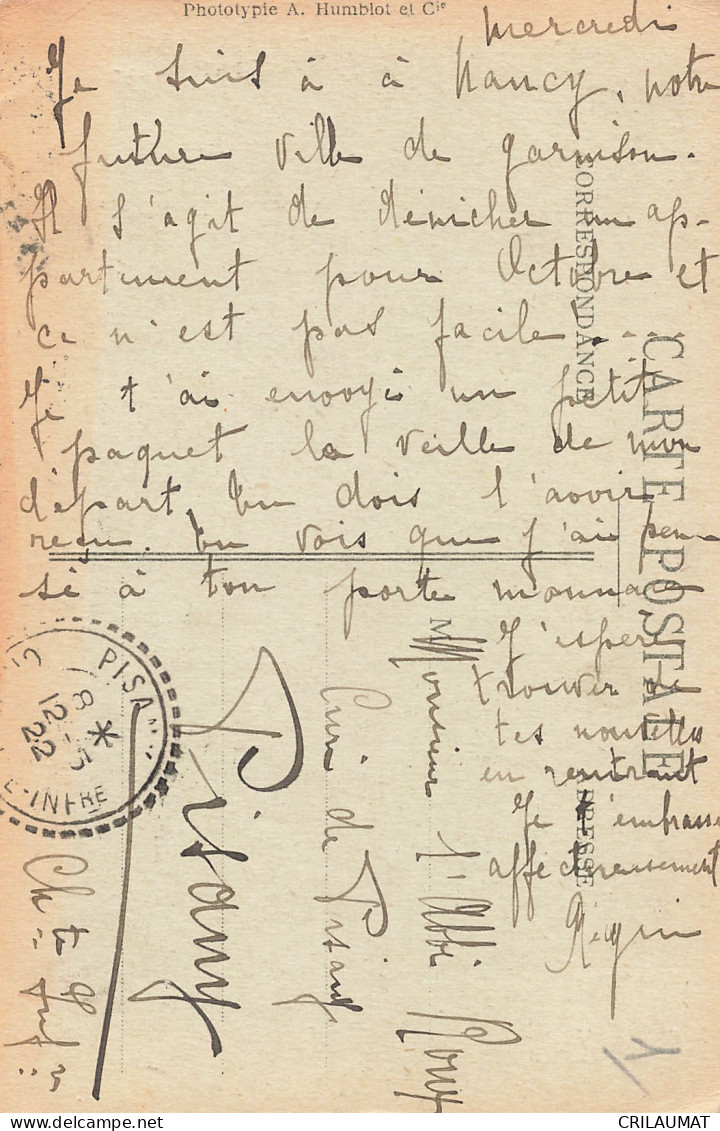 Phototypie A. Humblot et Cie
mercredi
Je suis à à Nancy, notre
future ville de garnison.
Il s'agit de dénicher un ap-
partement pour Octobre et
ce n'est pas facile....
Je t'ai envoyé un petit
paquet la veille de mon
départ, tu dois l'avoir
reçu. tu vois que j'ai pen
sé à ton porte monnaie
J'espère
trouver
tes nouvelles
en rentrant
Je t'embrasse
affectueusement
CARTE POSTALE
CORRESPONDANCE
ADRESSE
M
Monsieur l'Abbé
Curé de Pisany
Pisany
Chte Infre
PISANY
8 *
12-5
22
E-INFRE
CRILAUMAT